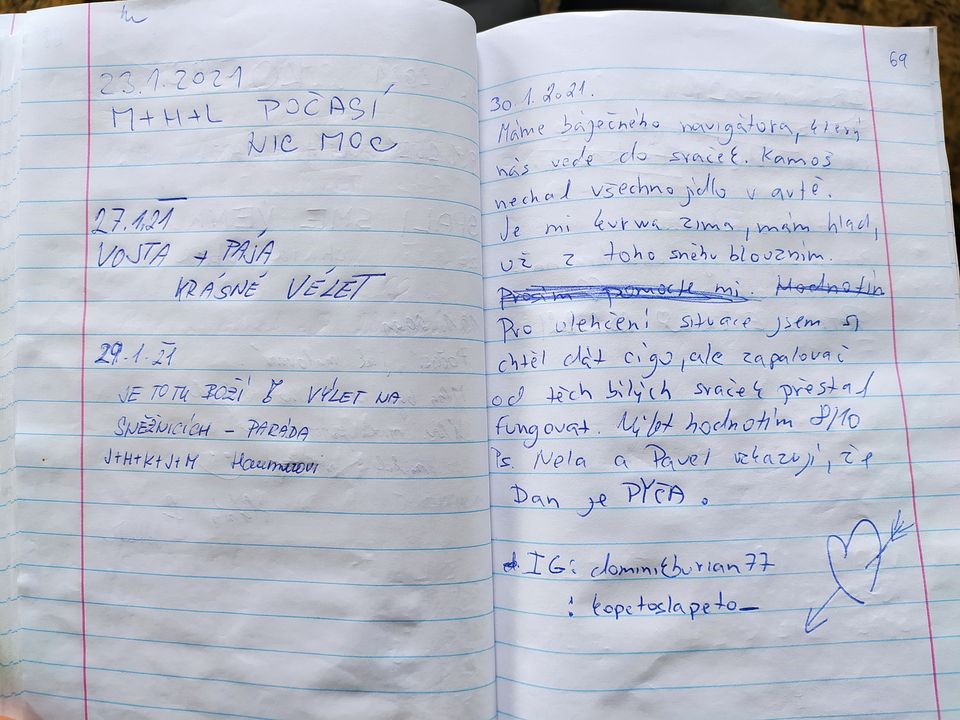 23.1.2021
M+H+L POČASÍ
NIC MOC
27.1.21
VOJTA + PÁJA
KRÁSNÉ VÉLET
29.1.21
JE TO TU BOŽÍ VÝLET NA
SNĚŽNICÍCH - PARÁDA
J+H+K+J+M
69
30.1.2021.
Máme báječného navigátora, který
nás vede do sraček. Kamoš
nechal všechno jídlo v autě.
Je mi kurwa zima, mám hlad,
už z toho sněhu blouzním.
Prosím pomozte mi. Hodnotím
Pro ulehčení situace jsem si
chtěl dát cígo, ale zapalovač
od těch bílých sraček přestal
fungovat. Výlet hodnotím 8/10
Ps. Nela a Pavel vzkazují, že
Dan je PYČA.
IG: dominikburian77
: kopetoslapeto_